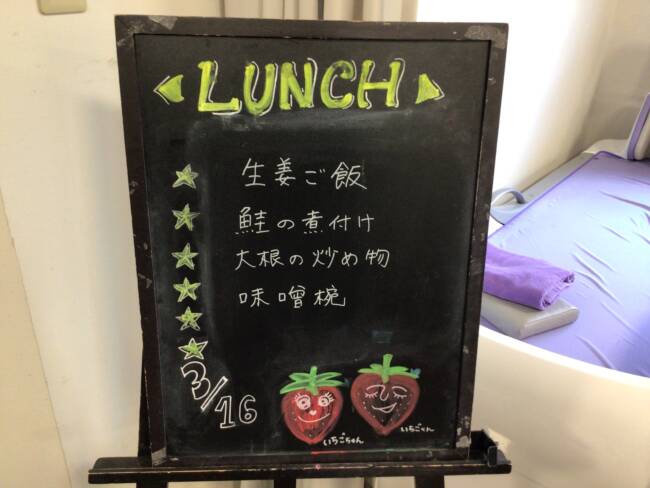 LUNCH
生姜ご飯
鮭の煮付け
大根の炒め物
味噌椀
3/16
いちごちゃん
いちごくん